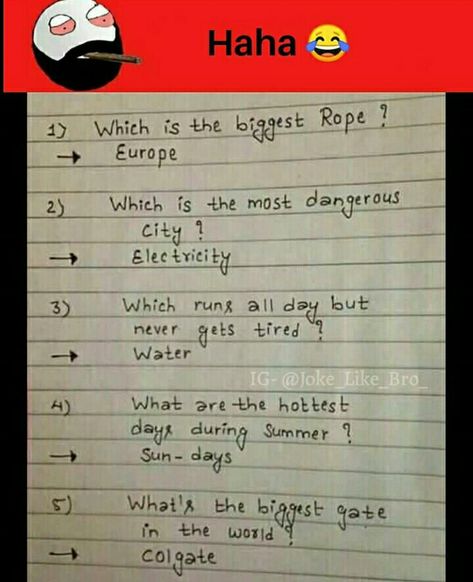 Haha 😂
1) Which is the biggest Rope ?
→ Europe
2) Which is the most dangerous
City ?
→ Electricity
3) Which runs all day but
never gets tired ?
→ Water
IG- @Joke_Like_Bro_
4) What are the hottest
days during Summer ?
→ Sun-days
5) What's the biggest gate
in the world ?
→ Colgate